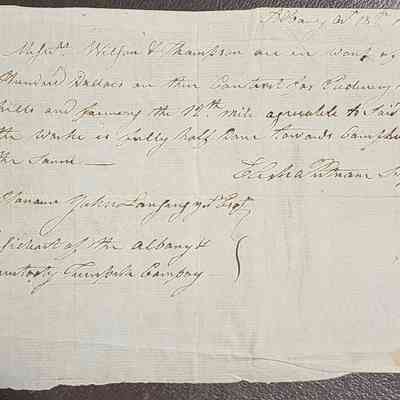 Albany Oct 18th 1
Messrs Wilson & Thompson are in want of
Hundred Dollars on their Contract for Reducing
hills and forming the 12th mile agreeable to said
the worke is fully half Done towards Compl
the same —
Elisha Putnam
John Lansing
of the Albany &
Turnpike Company